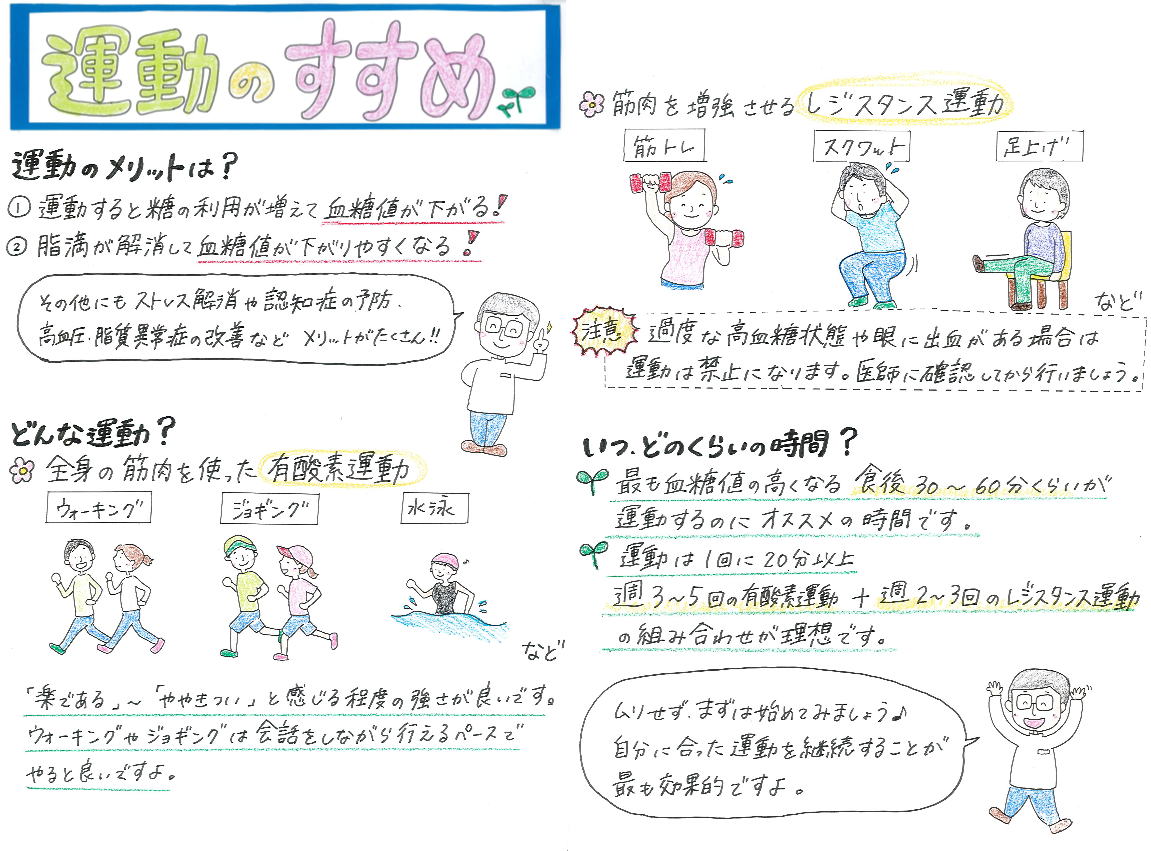 運動のすすめ
運動のメリットは？
① 運動すると糖の利用が増えて血糖値が下がる！
② 脂満が解消して血糖値が下がりやすくなる！
その他にもストレス解消や認知症の予防、
高血圧・脂質異常症の改善など メリットがたくさん!!
どんな運動？
全身の筋肉を使った有酸素運動
ウォーキング
ジョギング
水泳
など
「楽である」～「ややきつい」と感じる程度の強さが良いです。
ウォーキングやジョギングは会話をしながら行えるペースで
やると良いですよ。
筋肉を増強させるレジスタンス運動
筋トレ
スクワット
足上げ
など
注意
過度な高血糖状態や眼に出血がある場合は
運動は禁止になります。医師に確認してから行いましょう。
いつ、どのくらいの時間？
最も血糖値の高くなる食後30～60分くらいが
運動するのにオススメの時間です。
運動は1回に20分以上
週3～5回の有酸素運動＋週2～3回のレジスタンス運動
の組み合わせが理想です。
ムリせず、まずは始めてみましょう♪
自分に合った運動を継続することが
最も効果的ですよ。